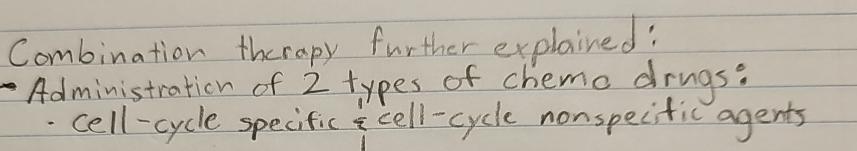 Combination therapy further explained:
- Administration of 2 types of chemo drugs:
· cell-cycle specific & cell-cycle nonspecific agents